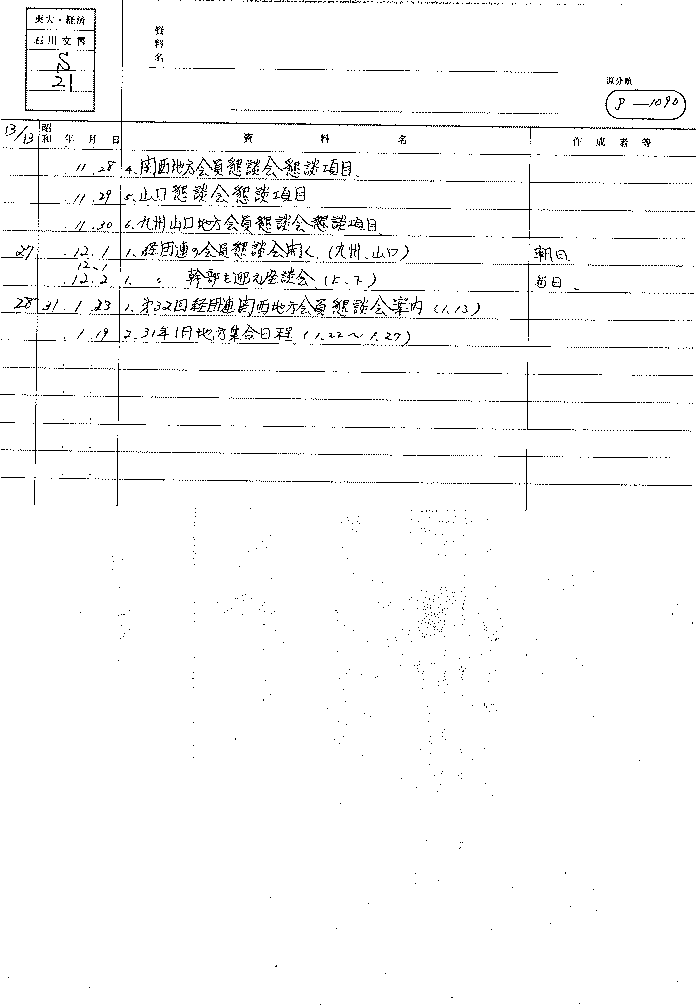 東大・経済
石川文書
S
21
資料名
原分類
P－1090
13/13 昭和 年 月 日 資料名 作成者等
11.28 4.関西地方会員懇談会懇談項目
11.29 5.山口懇談会懇談項目
11.30 6.九州山口地方会員懇談会懇談項目
27 12.1 1.経団連の会員懇談会開く(九州、山口) 朝日
12.1
12.2 1. 〃 幹部を迎え座談会
28 31.1.23 1.第32回経団連関西地方会員懇談会案内(1.13)
1.19 2.31年1月地方集会日程(1.22〜1.27)